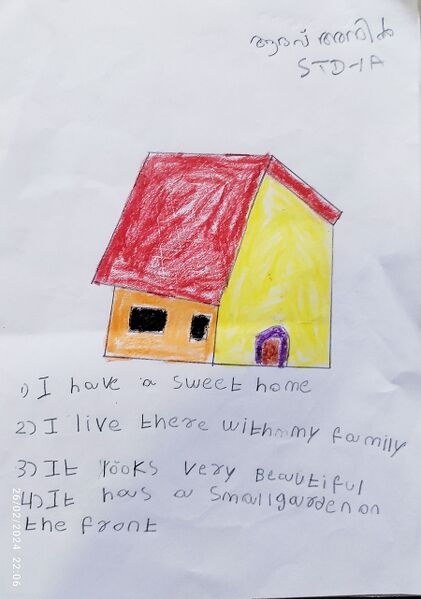 ആദവ് അനിൽ
STD-1A
1) I have a sweet home
2) I live there with my family
3) It looks very Beautiful
4) It has a small garden on
the front
26/02/2024 22:06